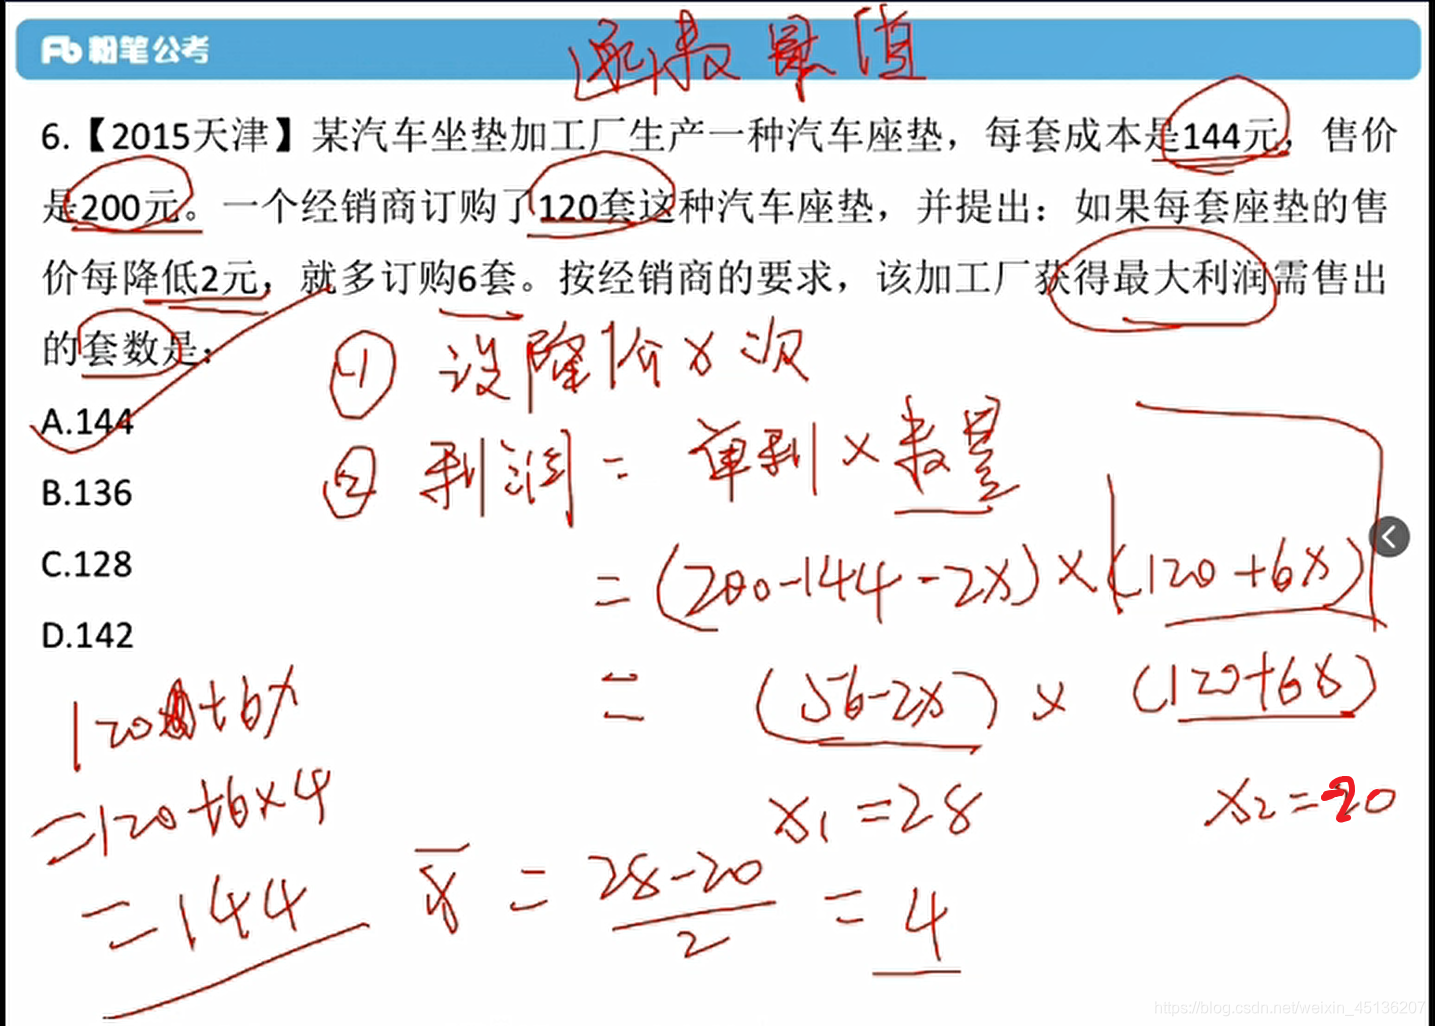 粉笔公考
函数最值
6.【2015天津】某汽车坐垫加工厂生产一种汽车座垫，每套成本是144元，售价
是200元。一个经销商订购了120套这种汽车座垫，并提出：如果每套座垫的售
价每降低2元，就多订购6套。按经销商的要求，该加工厂获得最大利润需售出
的套数是：
① 设降价x次
A.144
② 利润 = 单利 × 数量
B.136
C.128
= (200-144-2x) × (120+6x)
D.142
= (56-2x) × (120+6x)
120+6x
x₁ = 28 x₂ = -20
=120+6×4
x̄ = (28-20)/2 = 4
=144
https://blog.csdn.net/weixin_45136207